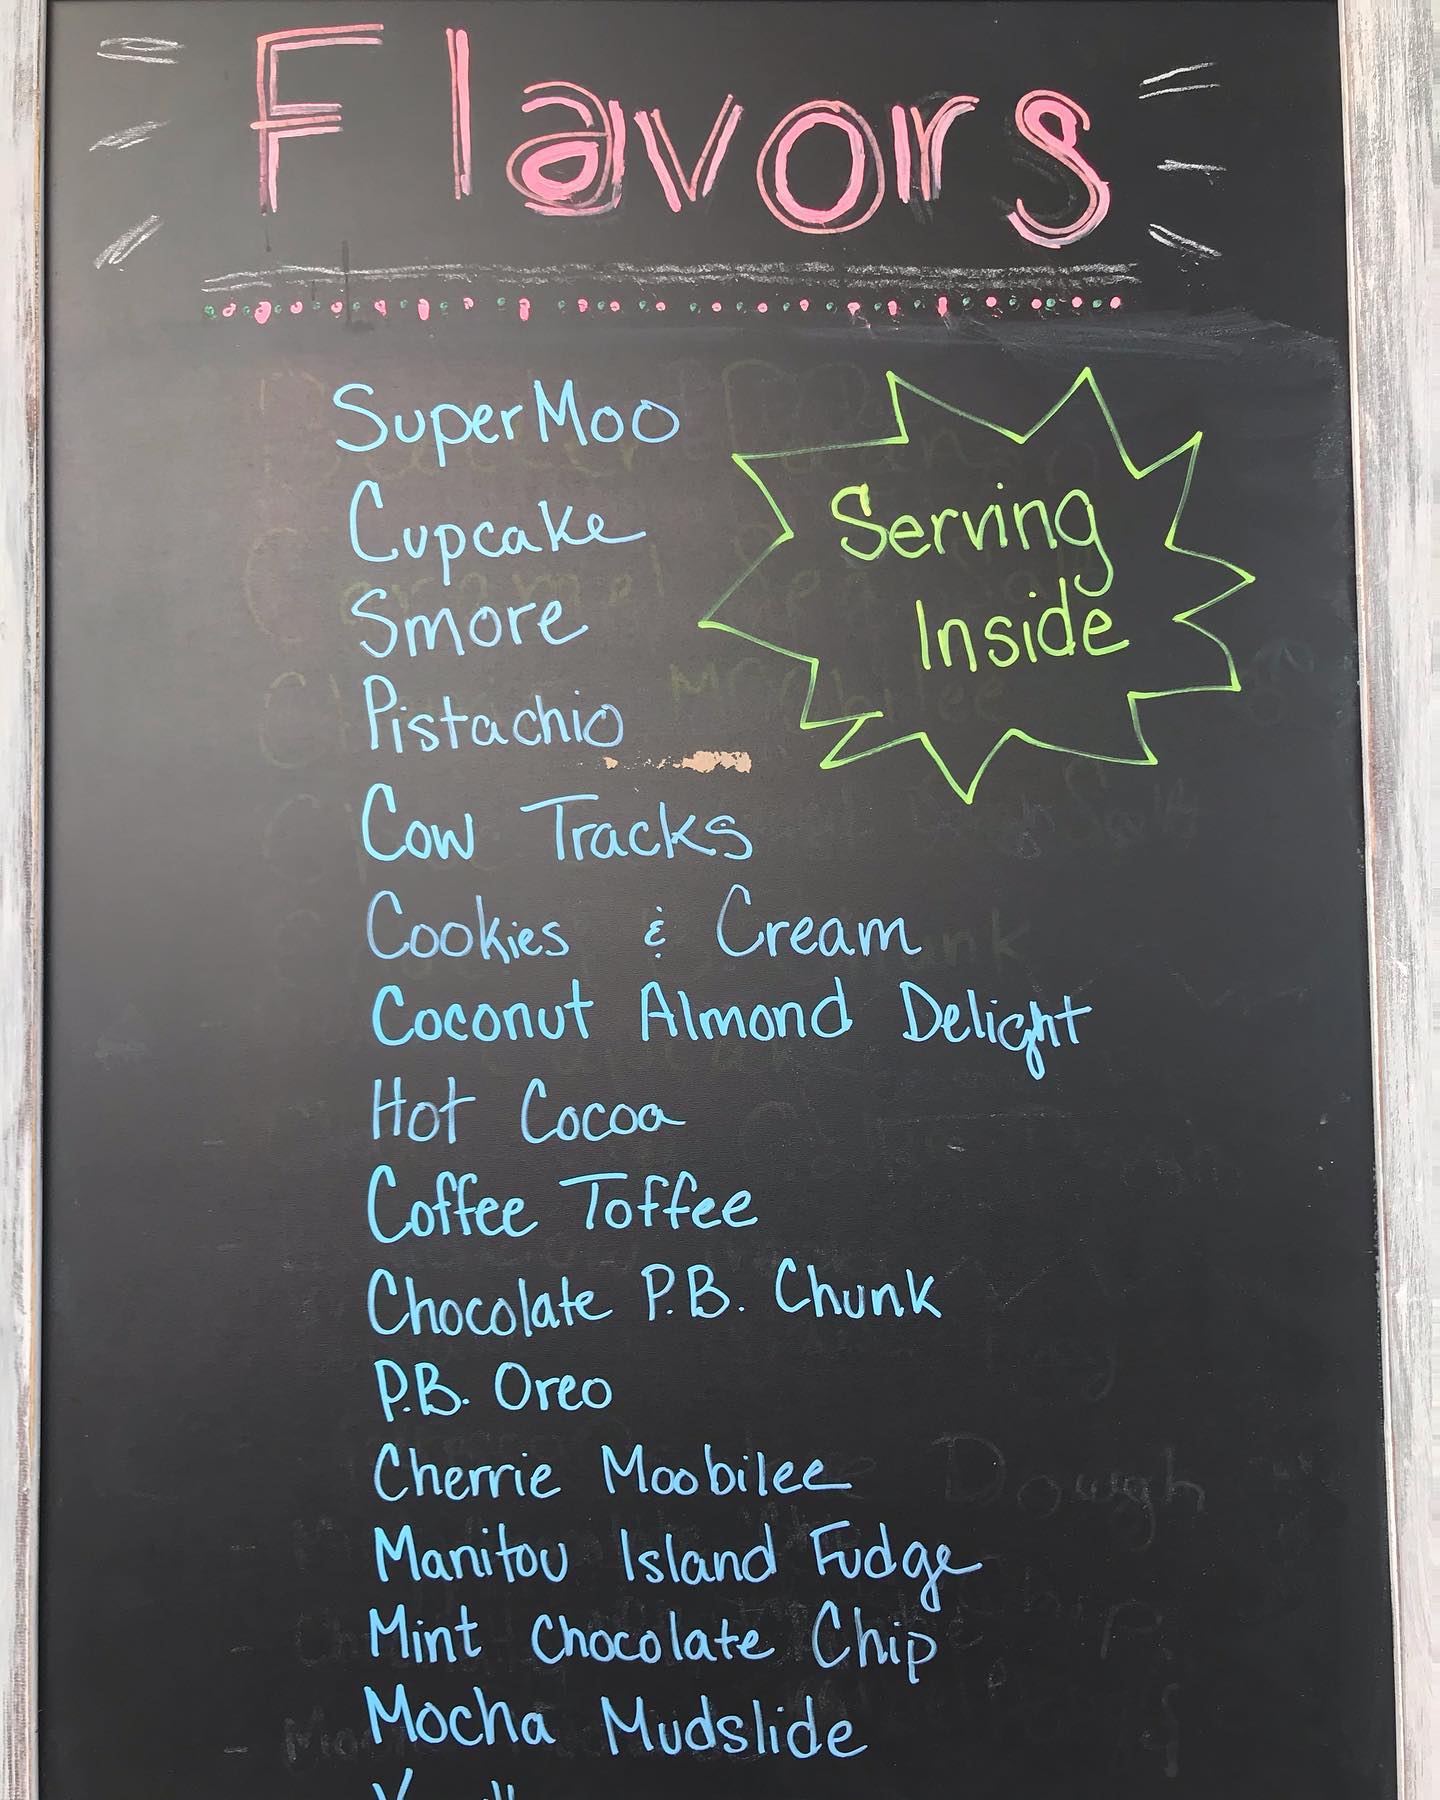 Flavors
SuperMoo
Cupcake
Smore
Pistachio
Serving
Inside
Cow Tracks
Cookies & Cream
Coconut Almond Delight
Hot Cocoa
Coffee Toffee
Chocolate P.B. Chunk
P.B. Oreo
Cherrie Moobilee
Manitou Island Fudge
Mint Chocolate Chip
Mocha Mudslide